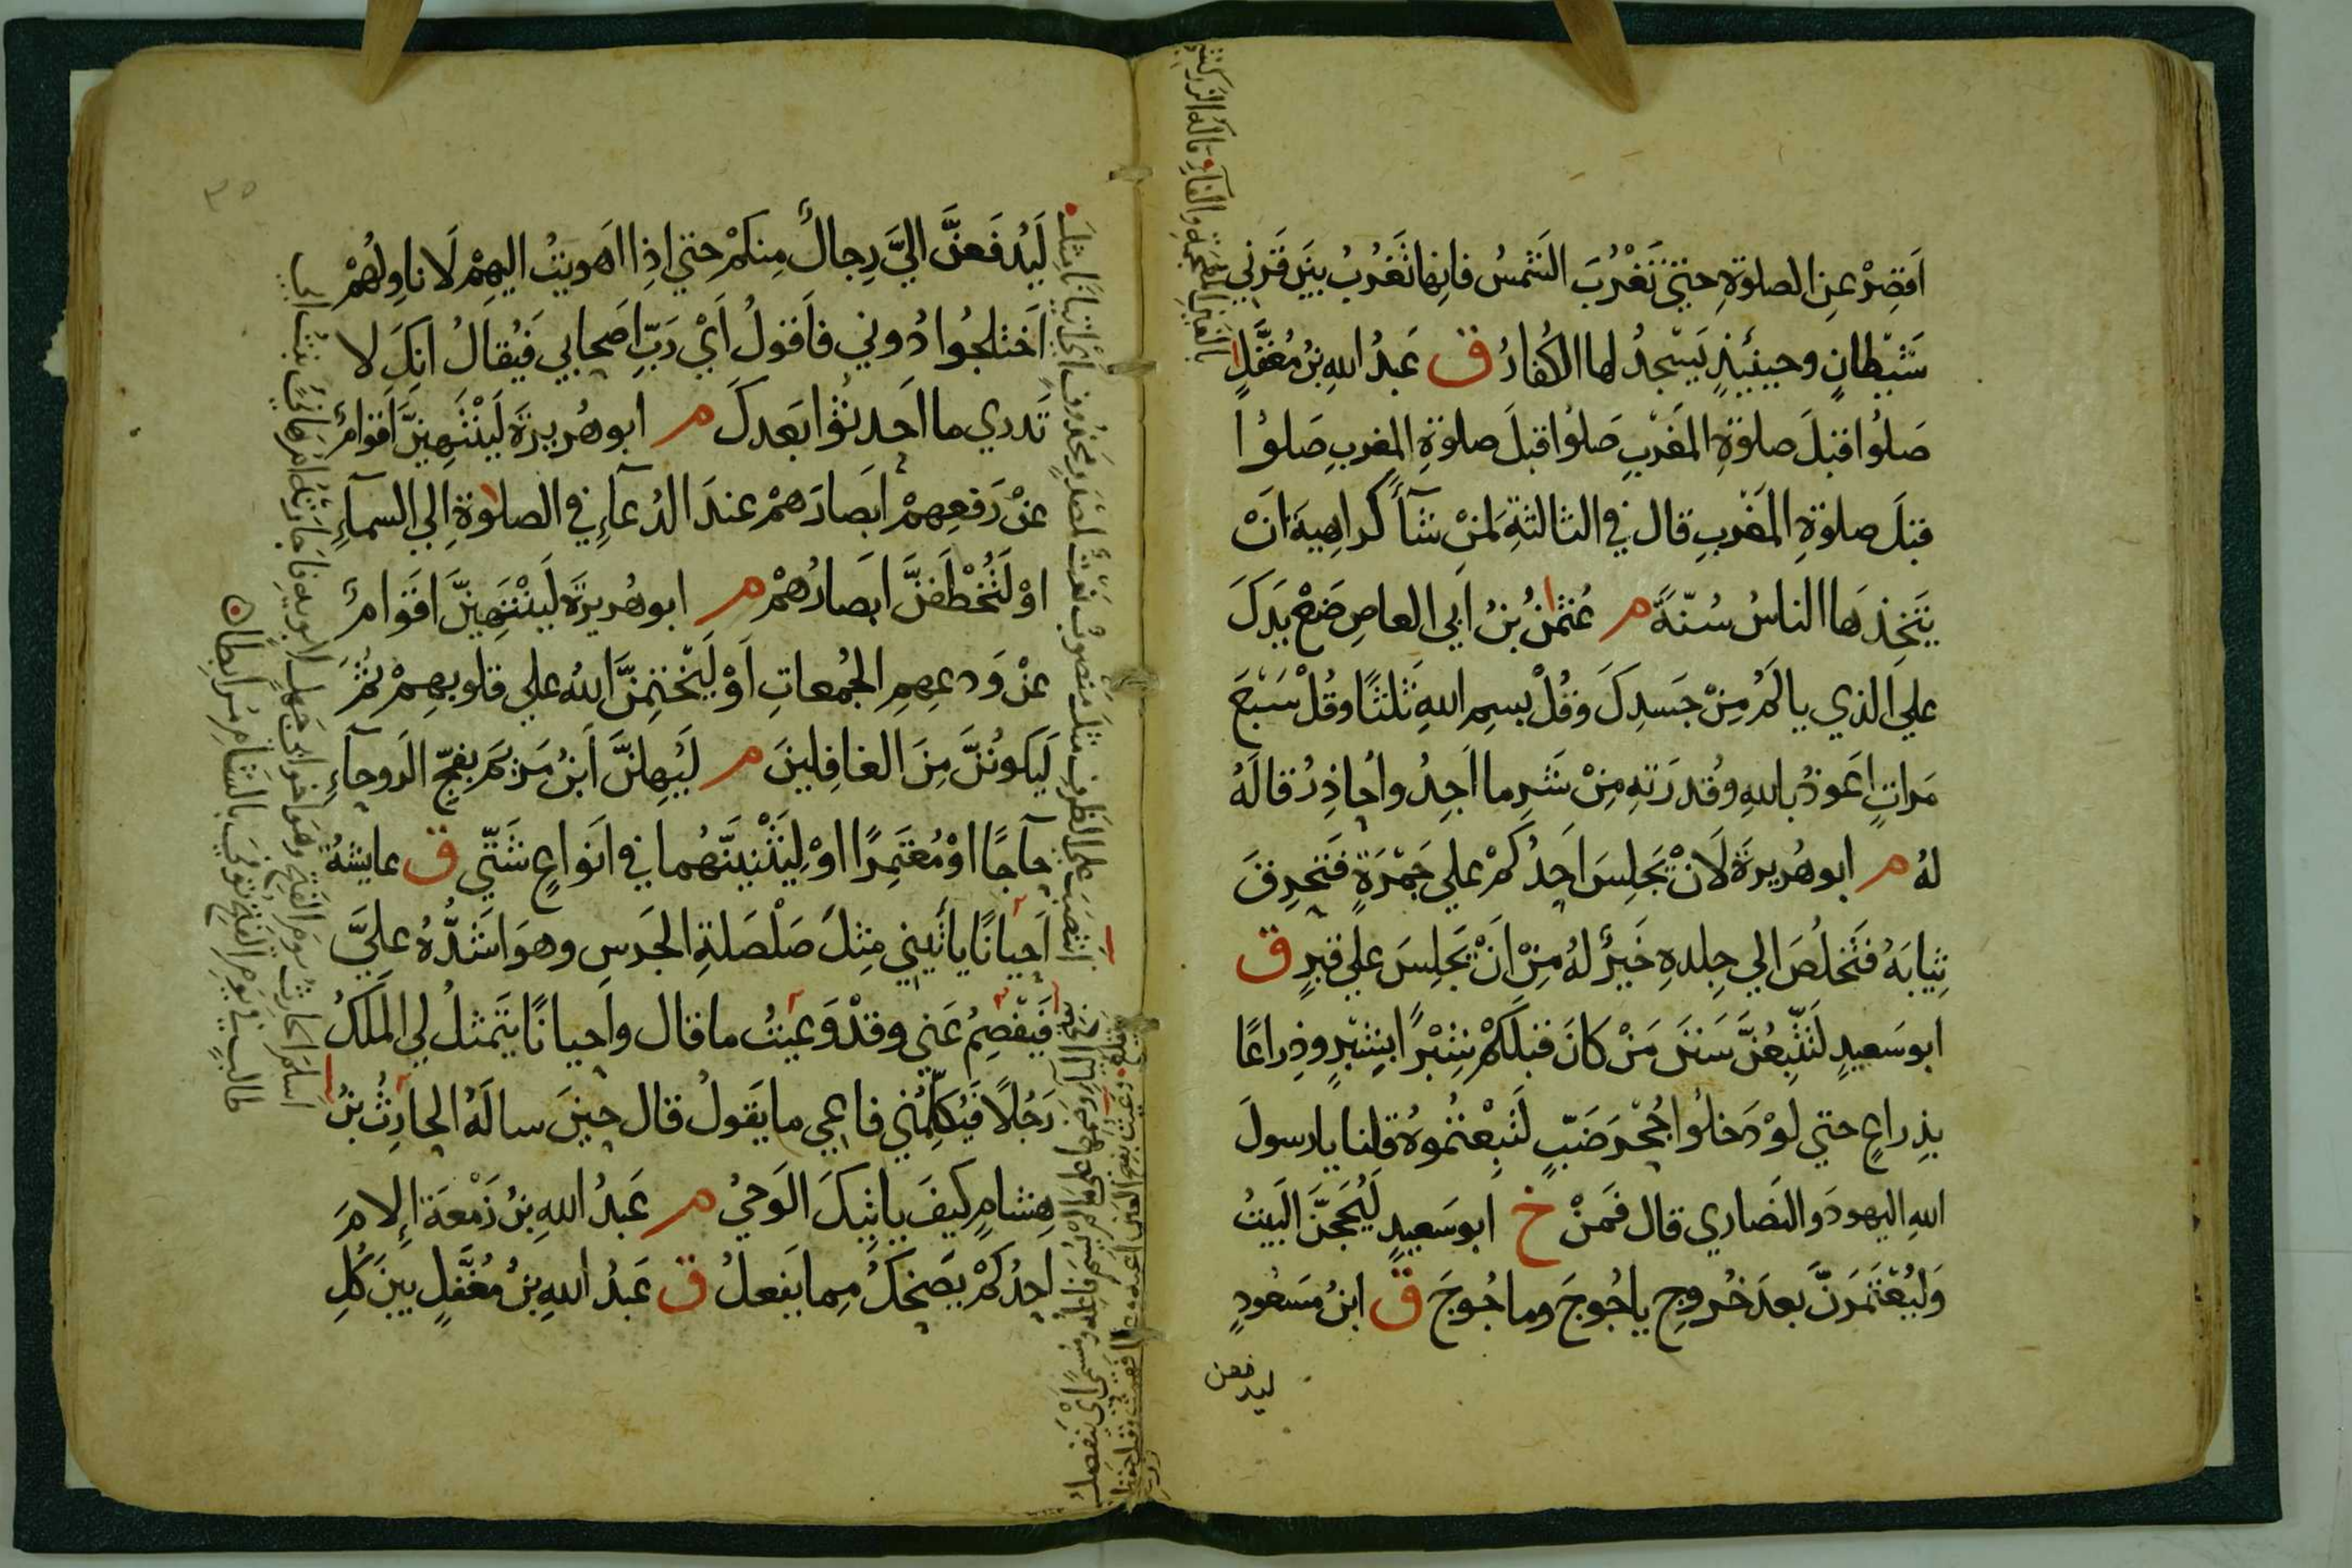 اَقصِرْ عنِ الصلوةِ حتيّ تَغْرُبَ الشمسُ فانِها تَغرُبُ بينَ قَرني
شَيْطانٍ وحينَئِذٍ يَسْجدُ لها الكُفارُ ق عَبدُ اللهِ بنُ مُغَفَّلٍ
صَلوُا قبلَ صلوةِ المَغربِ صَلوُا قبلَ صلوةِ المغربِ صَلوُا
قبلَ صلوةِ المَغربِ قال في الثالثةِ لمنْ شآءَ كراهِيةَ انْ
يَتخِذهَا الناسُ سُنّةً م عُثمٰنُ بنُ اَبي العاصِ ضَعْ يدَكَ
علي الذي يالَمُ مِنْ جَسدِكَ وقُلْ بسمِ اللهِ ثَلثًا وقُلْ سَبْعَ
مَراتٍ اَعوذُ باللهِ وقُدرَتهِ مِنْ شَرِ ما اَجِدُ واُحاذِرُ قالَهُ
لهُ م ابوهُريرةَ لَانْ يَجلِسَ احَدُكمْ علي جَمْرَةٍ فَتَحرِقَ
ثِيابَهُ فَتَخلُصَ الي جِلدهِ خَيرٌ لهُ مِنْ اَنْ يَجلِسَ علي قبرٍ ق
ابوسَعيدٍ لَتَتّبِعُنَّ سَنَنَ مَنْ كانَ قبلَكمْ شِبْرًا بشِبْرٍ وذِراعًا
بذِراعٍ حتي لوْ دَخلُوا جُحْرَ ضَبٍّ لَتَبِعْتُموهُ قلنا يارسولَ
اللهِ اليهودَ والنَصاري قال فَمنْ خ ابوسَعيدٍ لَيُحَجَّنَّ البَيتُ
وَلَيُعْتَمَرَنَّ بعدَ خُروجِ ياجُوجَ وماجُوجَ ق ابنُ مَسعُودٍ
ليدفعن
لَيُدفَعنَّ اليَّ رِجالٌ مِنكمْ حتي اِذا اهويتُ اليهِمْ لاناوِلهُمْ
اَختلجُوا دُوني فاَقولُ اَيْ رَبِّ اَصحابي فَيُقالُ انكَ لا
تَدري ما اَحدثُوا بَعدكَ م ابوهُريرةَ لَيَنْتَهِينَّ اَقوامٌ
عنْ رَفعِهمْ ابَصارَهمْ عندَ الدُعآءِ في الصلوةِ الي السمآءِ
اوْ لَتُخْطَفَنَّ ابَصارُهمْ م ابوهُريرةَ لَيَنْتَهِينَّ اَقوامٌ
عنْ وَدعِهمِ الجُمعاتِ اَوْ لَيَخْتِمَنَّ اللهُ علي قلوبهِمْ ثُمَّ
لَيَكونُنَّ مِنَ الغافِلينَ م لَيُهِلنَّ اَبنُ مَريَمَ بفجِّ الرَوحآءِ
حآجًا اوْ مُعْتَمِرًا اوْ لِيَثْنِيَنَّهُما في اَنواعٍ شَتّي ق عايشةُ
اَحيانًا ياتيني مِثلَ صَلْصَلةِ الجَرسِ وهوَ اشَدُّهُ عليَّ
فَيَفْصِمُ عَني وقدْ وَعَيتُ ما قال واَحيانًا يتَمثلُ لي المَلَكُ
رَجُلًا فَيُكلِّمُني فاعي ما يَقولُ قال حينَ سالَهُ الحارِثُ بنُ
هِشامٍ كيفَ ياتيكَ الوَحيُ م عَبدُ اللهِ بنُ زَمْعَةَ اِلامَ
احدُكمْ يَضحكُ مِما يَفعلُ ق عَبدُ اللهِ بنُ مُغَفَّلٍ بينَ كُلِ